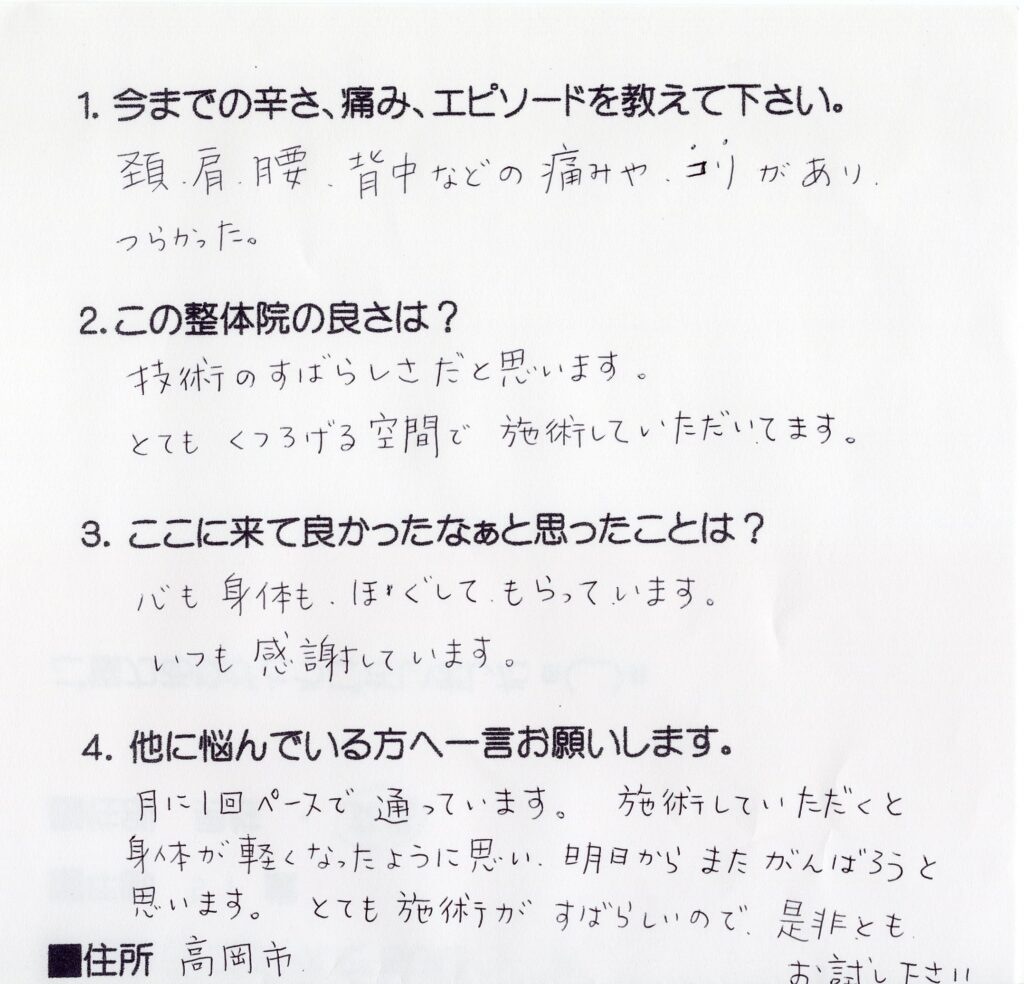 1. 今までの辛さ、痛み、エピソードを教えて下さい。
頚、肩、腰、背中などの痛みや、コリがあり、
つらかった。
2. この整体院の良さは？
技術のすばらしさだと思います。
とても くつろげる空間で 施術していただいてます。
3. ここに来て良かったなぁと思ったことは？
心も身体も、ほぐしてもらっています。
いつも感謝しています。
4. 他に悩んでいる方へ一言お願いします。
月に1回ペースで通っています。 施術していただくと
身体が軽くなったように思い、明日から またがんばろうと
思います。 とても施術がすばらしいので、是非とも
■住所 高岡市
お試し下さい